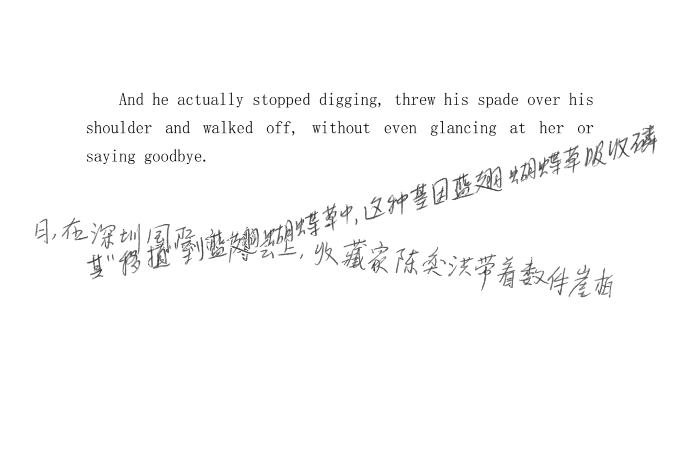 And he actually stopped digging, threw his spade over his
shoulder and walked off, without even glancing at her or
saying goodbye.
其"移植"到蓝翅蝴蝶草中,这种基因蓝翅蝴蝶草吸收磷
日,在深圳国际 会上,收藏家陈奕洪带着数件崖柏